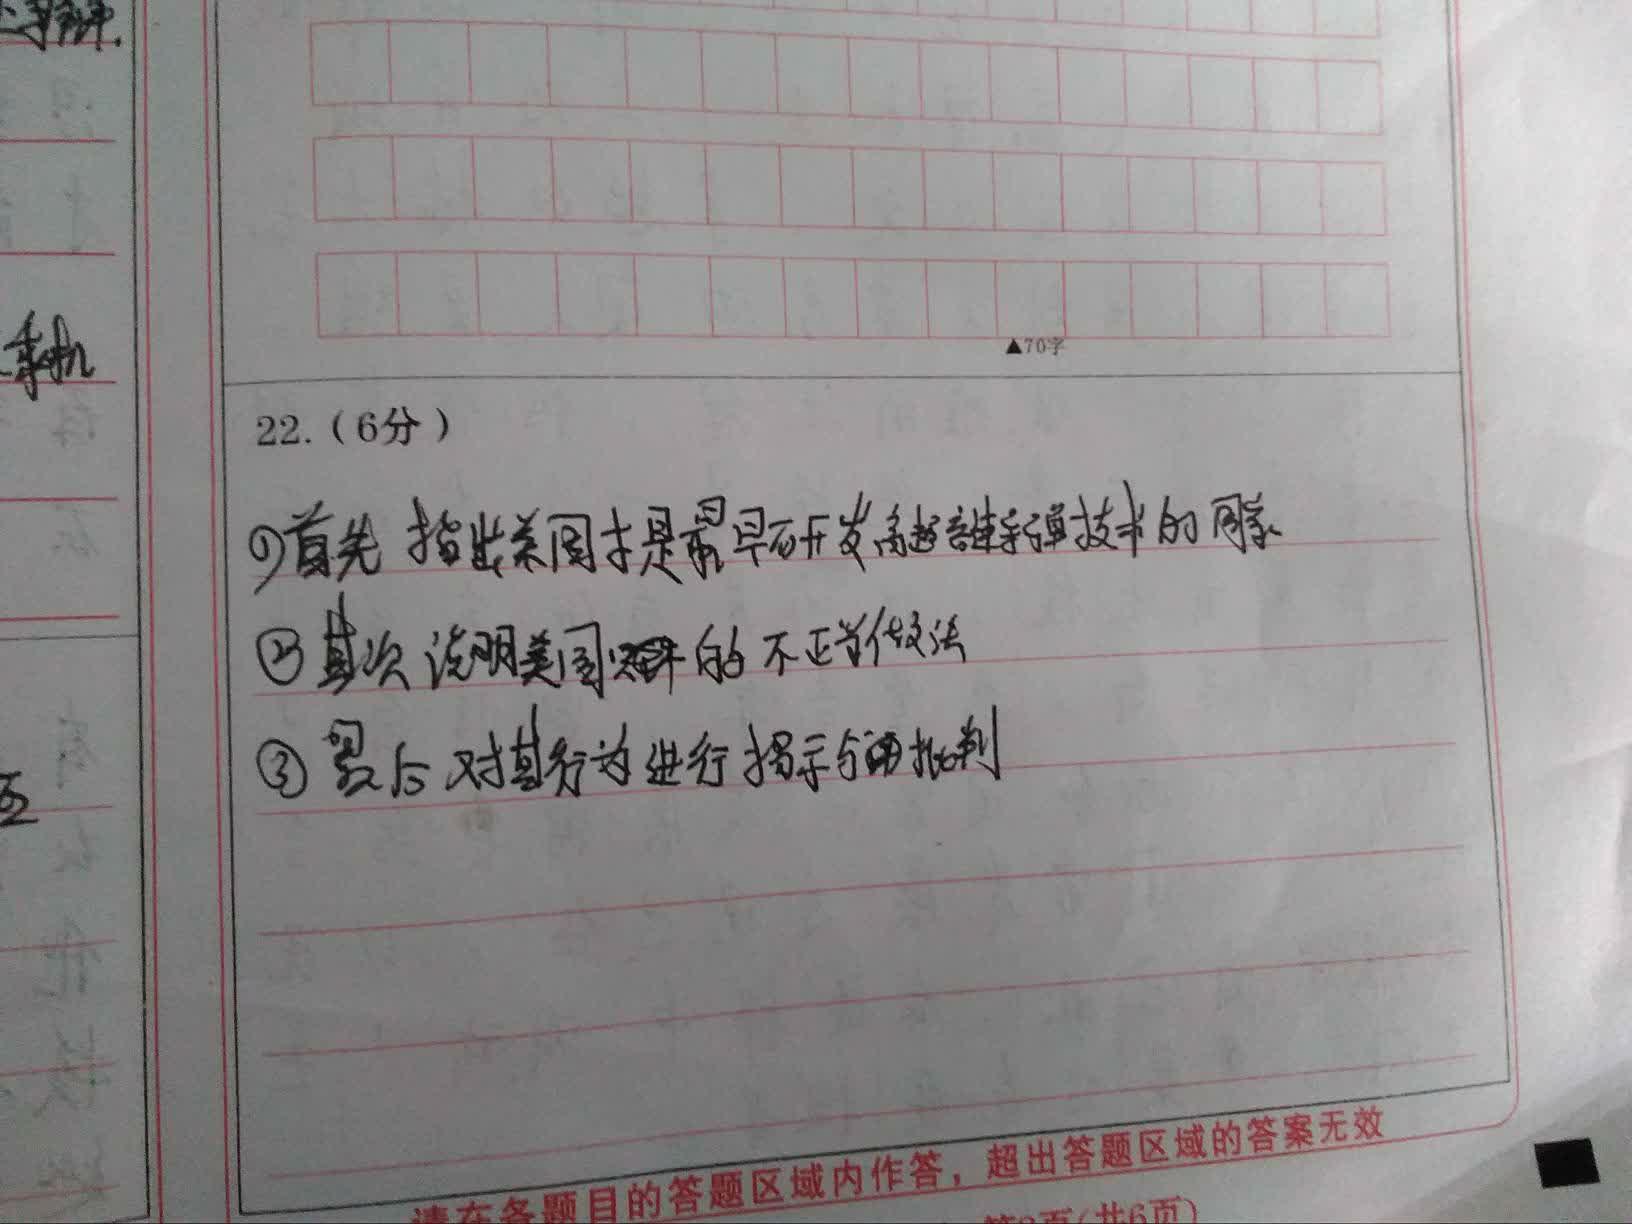 乘机
▲70字
22.(6分)
①首先 指出美国才是最早研发高超音速导弹技术的国家
②其次 说明美国的不正当做法
③最后 对其行为进行揭示与批判
请在各题目的答题区域内作答，超出答题区域的答案无效
(共6页)